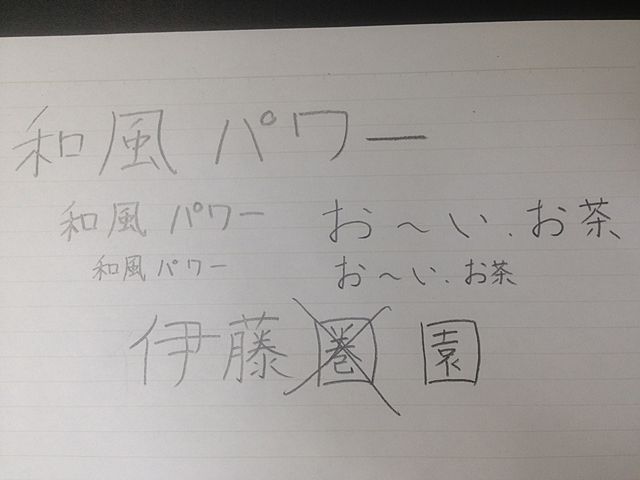 和風パワー
和風パワー お〜い、お茶
和風パワー お〜い、お茶
伊藤圏園